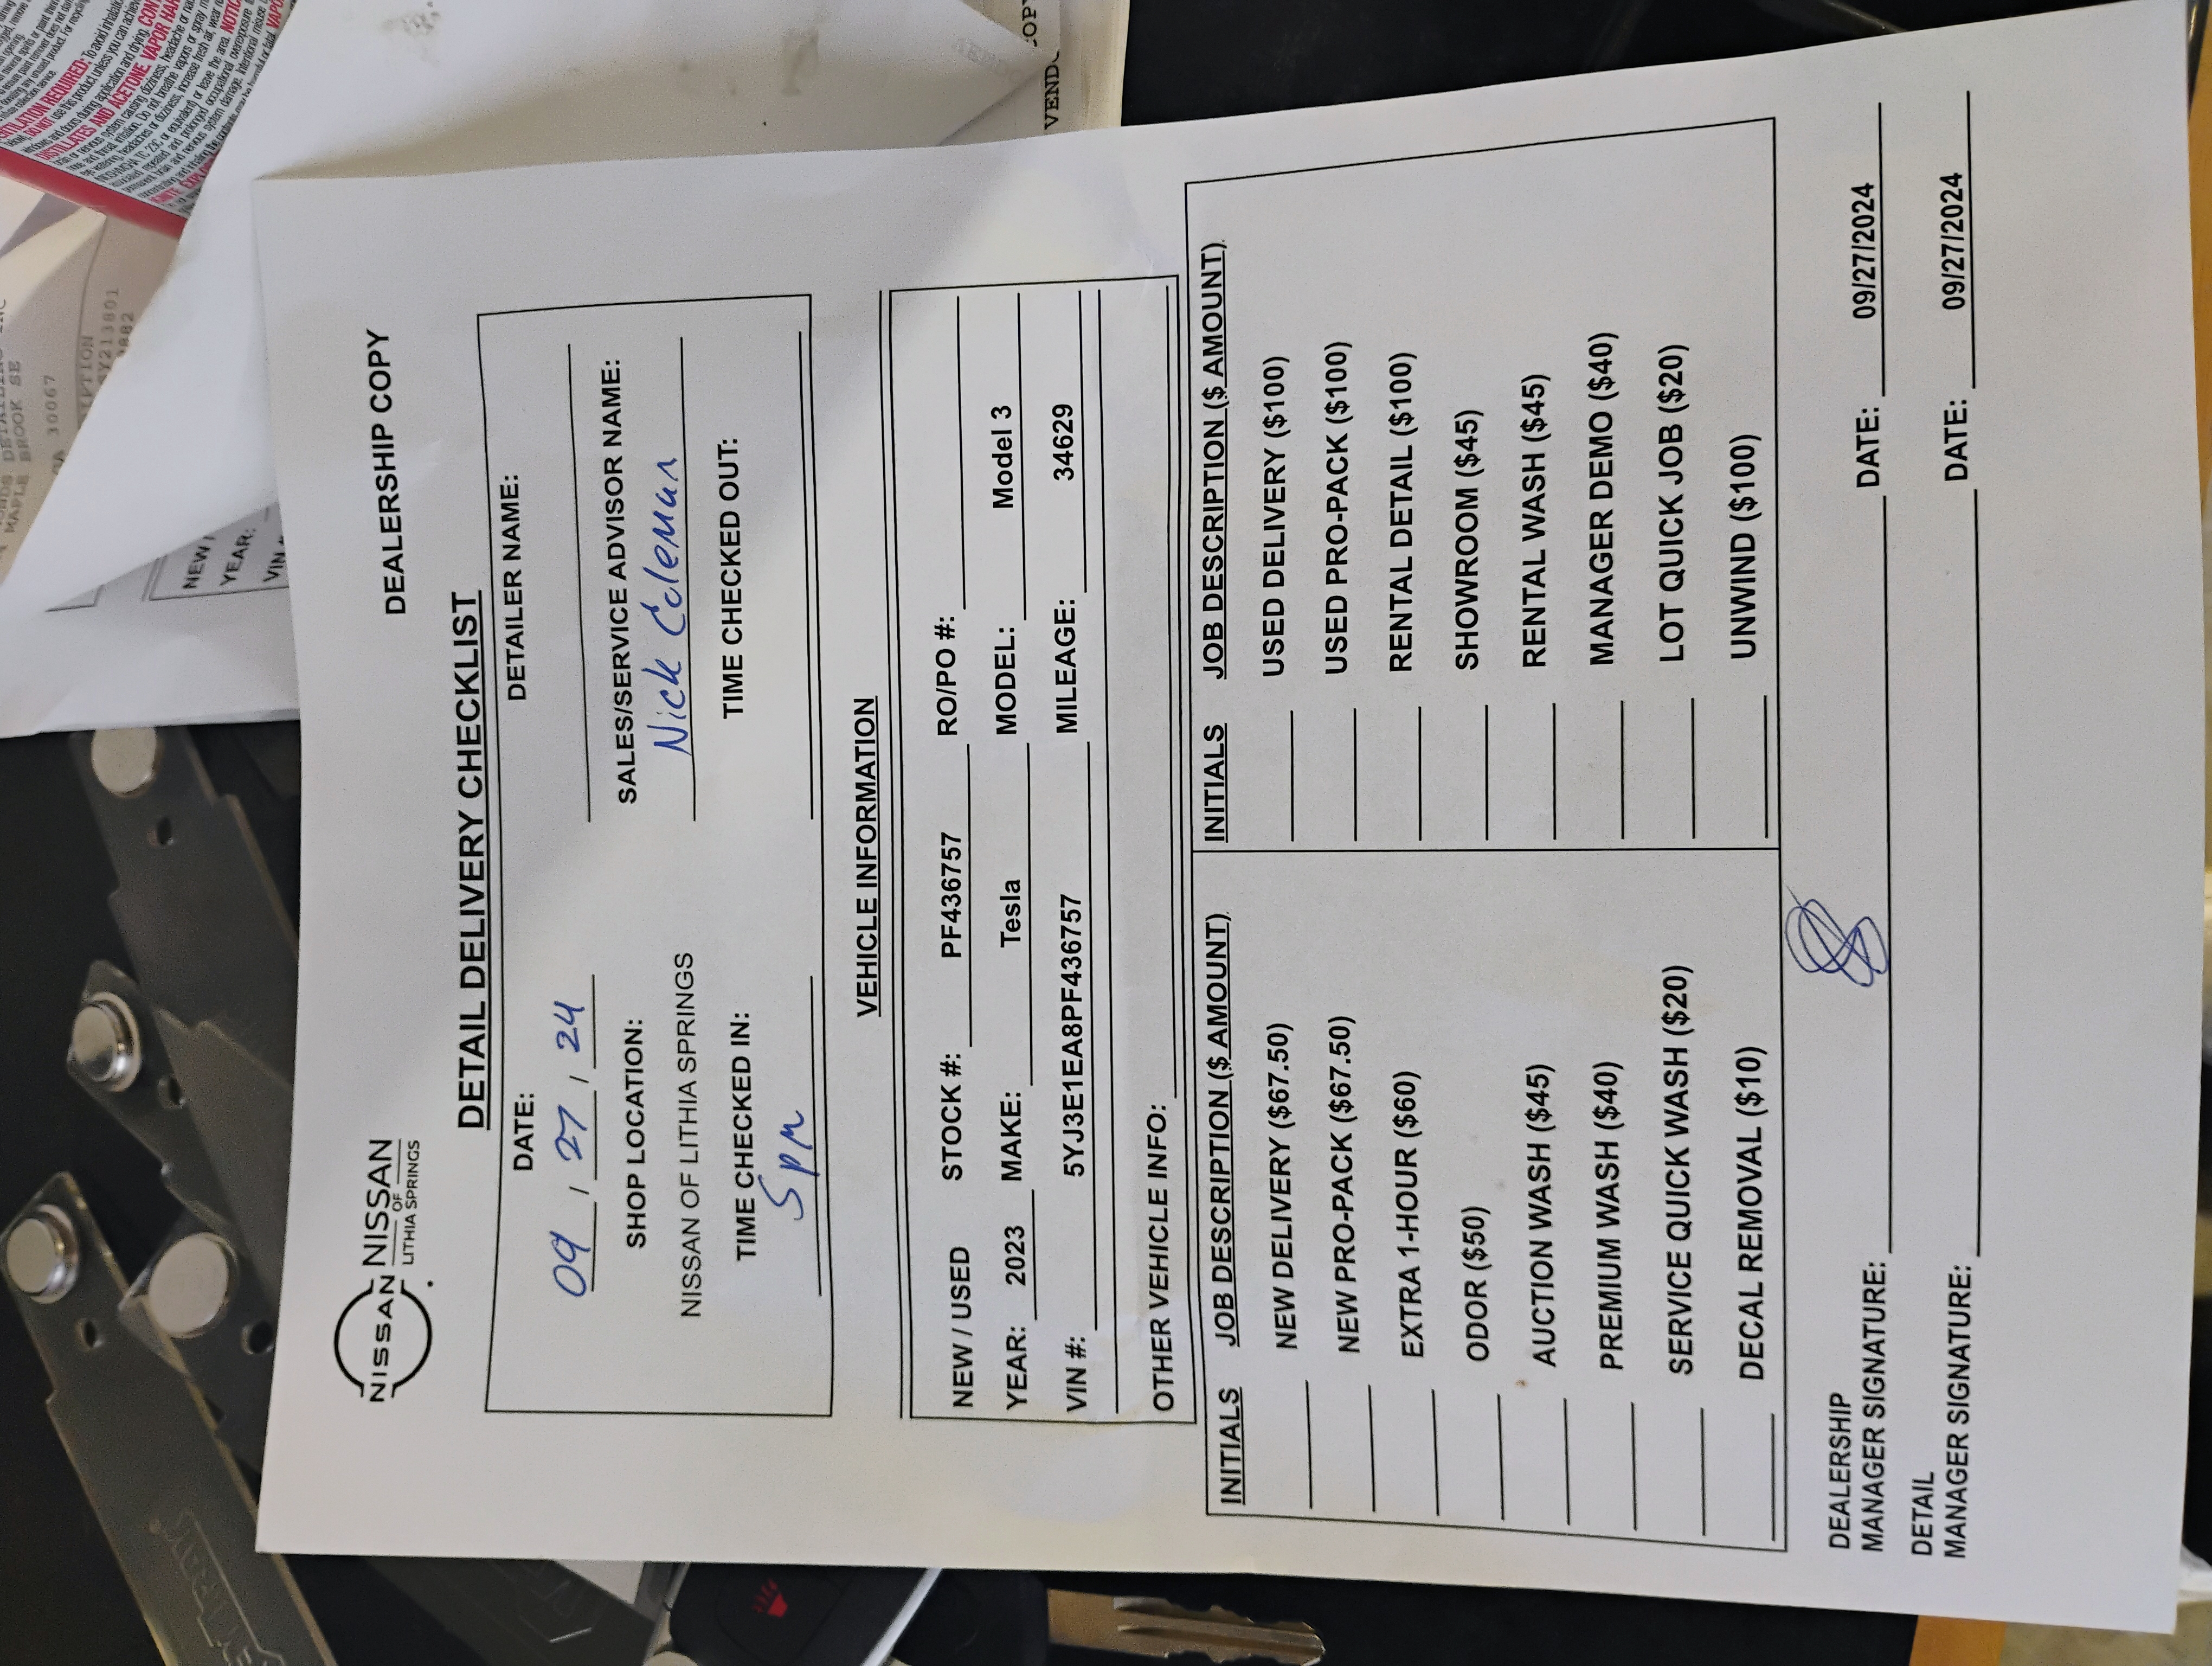 NISSAN NISSAN
OF
LITHIA SPRINGS
DEALERSHIP COPY
DETAIL DELIVERY CHECKLIST
DATE: DETAILER NAME:
09 / 27 / 24
SHOP LOCATION: SALES/SERVICE ADVISOR NAME:
NISSAN OF LITHIA SPRINGS Nick Coleman
TIME CHECKED IN: TIME CHECKED OUT:
5pm
VEHICLE INFORMATION
NEW / USED STOCK #: PF436757 RO/PO #:
YEAR: 2023 MAKE: Tesla MODEL: Model 3
VIN #: 5YJ3E1EA8PF436757 MILEAGE: 34629
OTHER VEHICLE INFO:
INITIALS JOB DESCRIPTION ($ AMOUNT) INITIALS JOB DESCRIPTION ($ AMOUNT)
NEW DELIVERY ($67.50) USED DELIVERY ($100)
NEW PRO-PACK ($67.50) USED PRO-PACK ($100)
EXTRA 1-HOUR ($60) RENTAL DETAIL ($100)
ODOR ($50) SHOWROOM ($45)
AUCTION WASH ($45) RENTAL WASH ($45)
PREMIUM WASH ($40) MANAGER DEMO ($40)
SERVICE QUICK WASH ($20) LOT QUICK JOB ($20)
DECAL REMOVAL ($10) UNWIND ($100)
DEALERSHIP
MANAGER SIGNATURE: DATE: 09/27/2024
DETAIL
MANAGER SIGNATURE: DATE: 09/27/2024
NEW /
YEAR:
VIN
MAPLE BROOK SE
30067